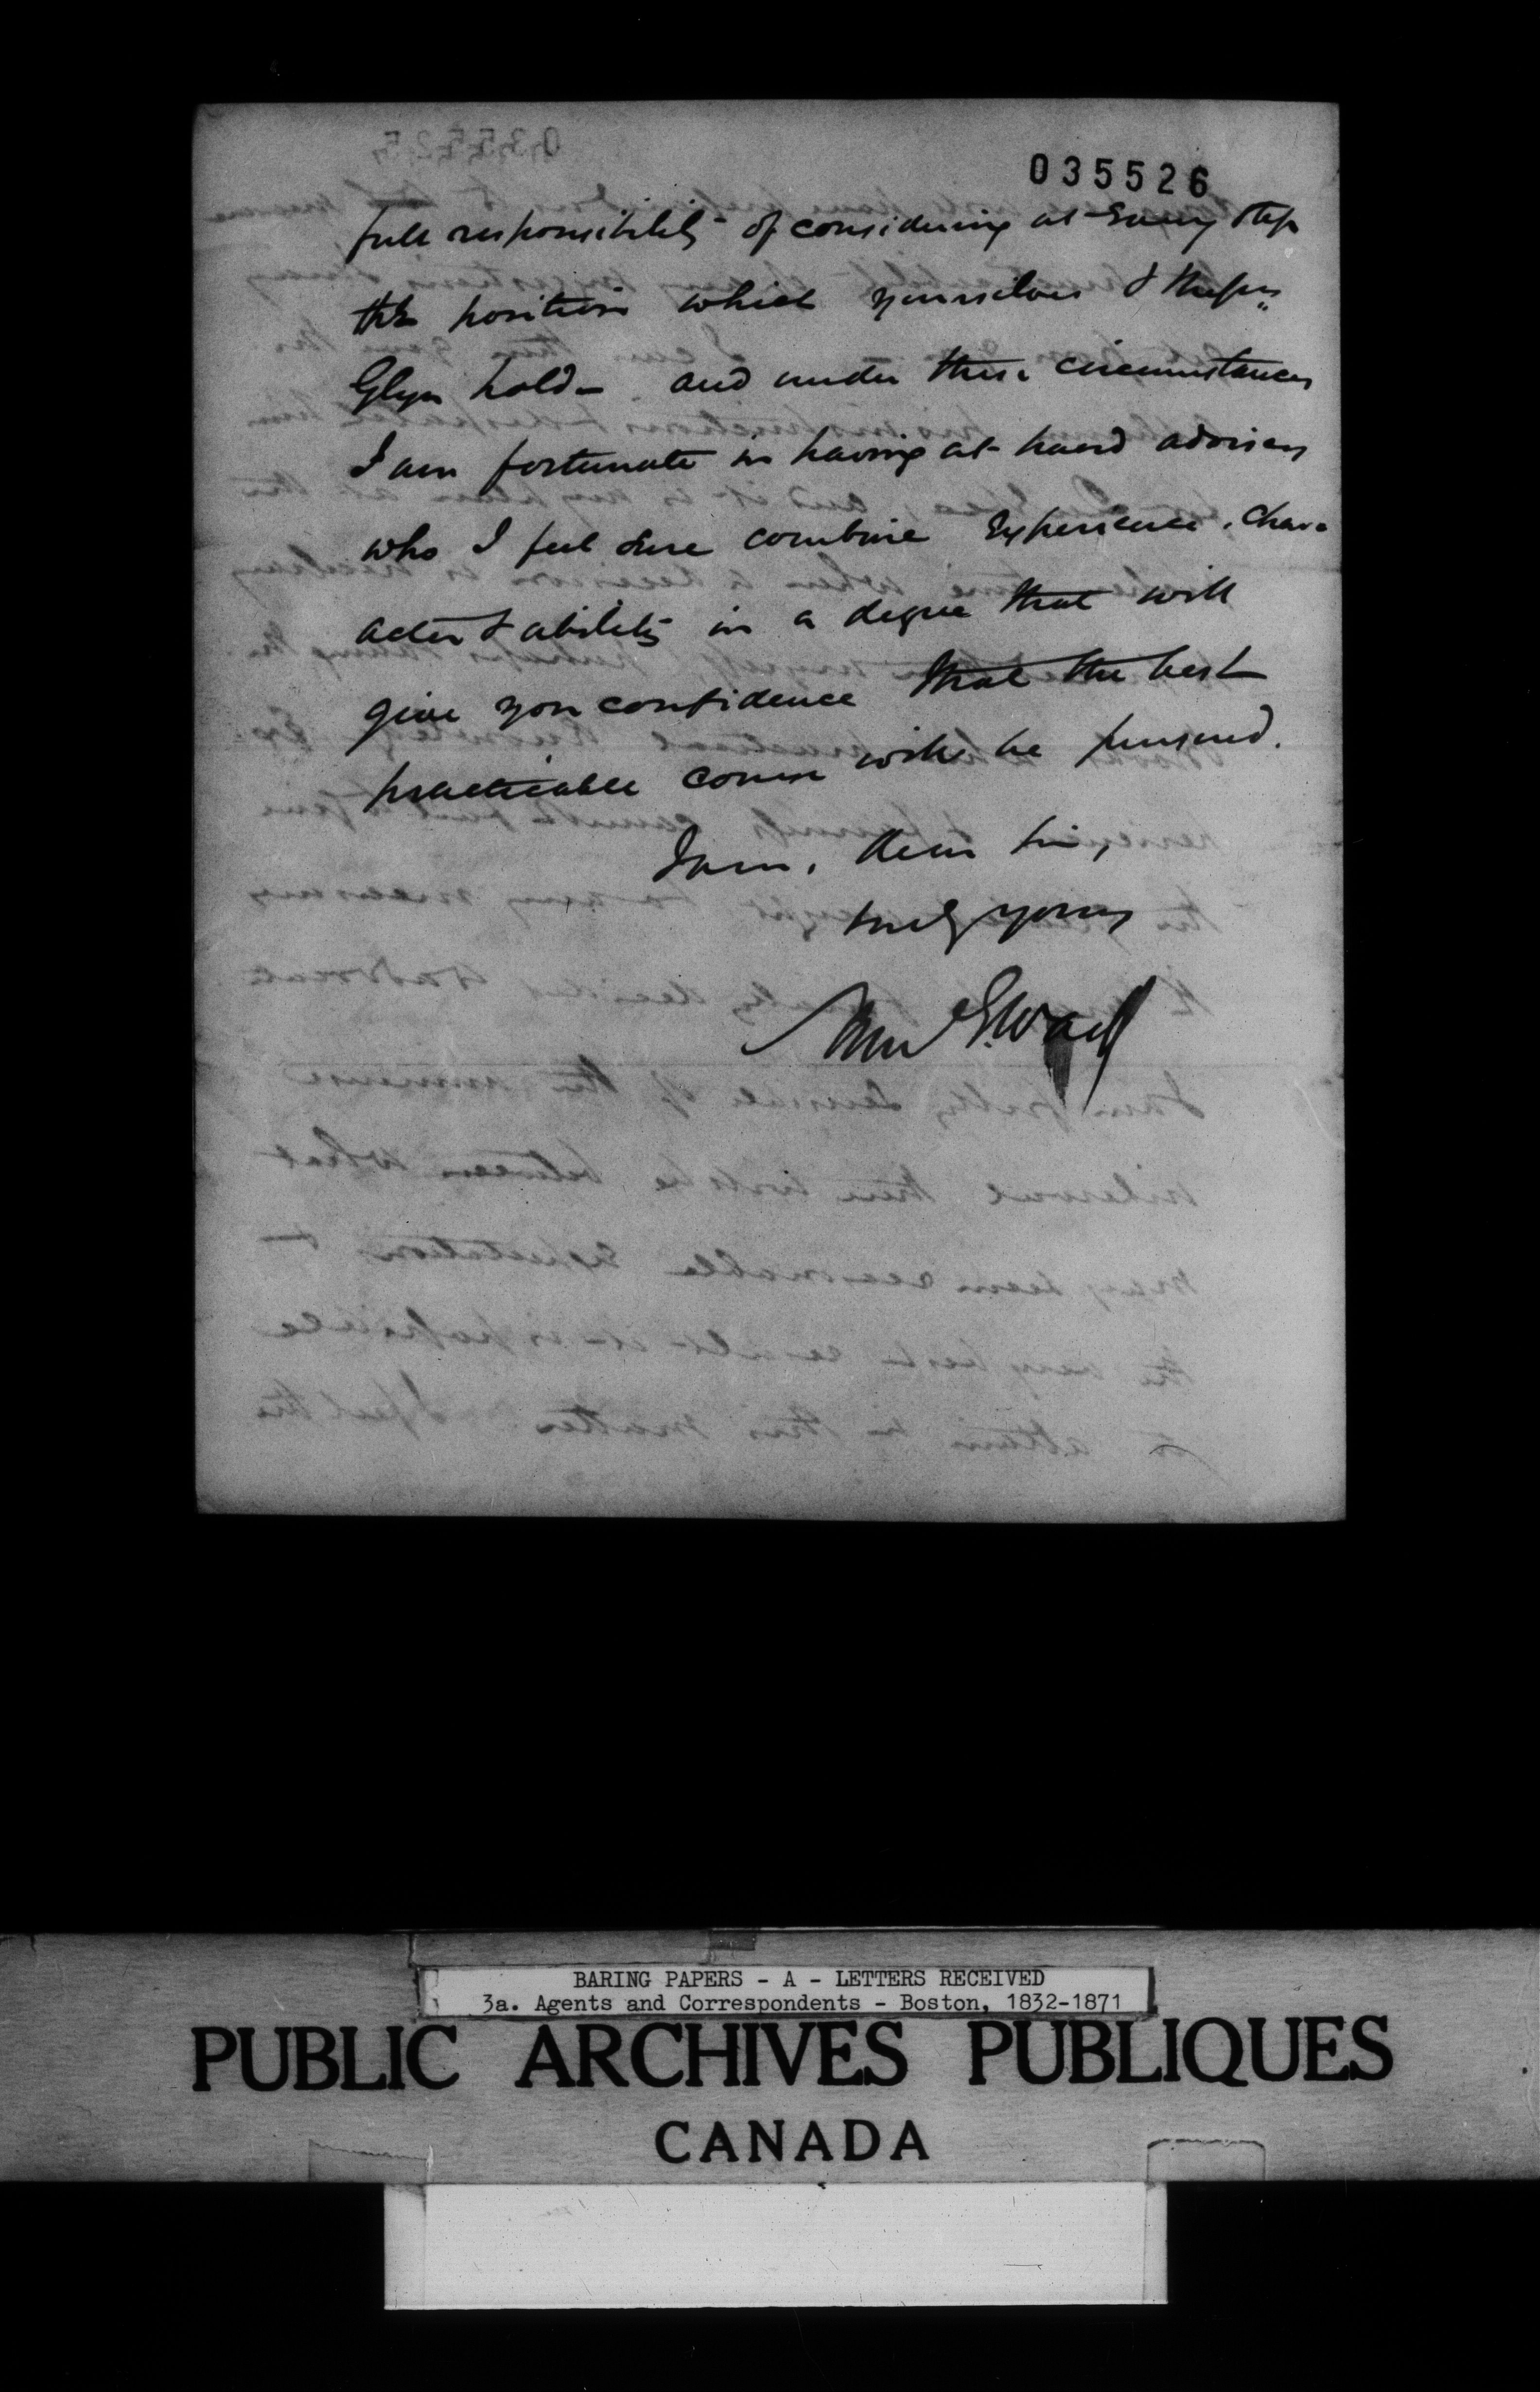 035526
full responsibility of considering at every step
the position which yourselves & Messrs
Glyn hold - and under these circumstances
I am fortunate in having at hand advisers
who I feel sure combine experience, char=
acter & ability in a degree that will
give you confidence that the best
practicable course will be pursued.
I am, dear Sir,
truly yours
S. G. Ward
BARING PAPERS - A - LETTERS RECEIVED
3a. Agents and Correspondents - Boston, 1832-1871
PUBLIC ARCHIVES PUBLIQUES
CANADA